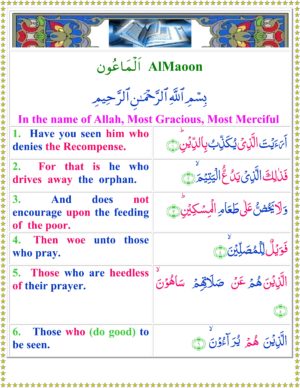 اَلْمَاعُون AlMaoon
بِسْمِ اللَّهِ الرَّحْمَٰنِ الرَّحِيمِ
In the name of Allah, Most Gracious, Most Merciful
1. Have you seen him who
denies the Recompense.
اَرَءَيْتَ الَّذِىْ يُكَذِّبُ بِالدِّيْنِؕ
2. For that is he who
drives away the orphan.
فَذٰلِكَ الَّذِىْ يَدُعُّ الْيَتِيْمَۙ
3. And does not
encourage upon the feeding
of the poor.
وَلَا يَحُضُّ عَلٰى طَعَامِ الْمِسْكِيْنِؕ
4. Then woe unto those
who pray.
فَوَيْلٌ لِّلْمُصَلِّيْنَۙ
5. Those who are heedless
of their prayer.
الَّذِيْنَ هُمْ عَنْ صَلَاتِهِمْ سَاهُوْنَۙ
6. Those who (do good) to
be seen.
الَّذِيْنَ هُمْ يُرَآءُوْنَۙ